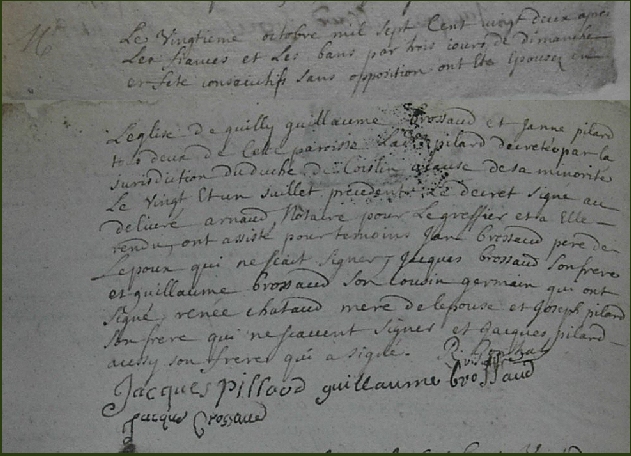 Le vingtieme octobre mil sept Cent vingt deux apres
Les fiances et Les bans par trois iours de dimanche
et fete consecutifs sans opposition ont ete Epousez en
Leglise de quilly guillaume brossaud et Janne pilard
deux de Cette parroisse La pilard decretée par la
jurisdiction duduche de Coislin acause de sa minorité
Le vingt Et un juillet precedent Le decret signé au
delivré arnaud Notaire pour Le greffier et a Elle
rendu, ont assisté pour temoins Jan brossaud pere de
Lepoux qui ne scait signer, Jacques brossaud son frere
et guillaume brossaud son cousin germain qui ont
signé, renée chataud mere delepouse et Joseph pilard
son frere qui ne scauent signer et Jacques pilard
aussy son frere qui a signé.
Jacques pillard guillaume brossaud
Jacque Brossaud